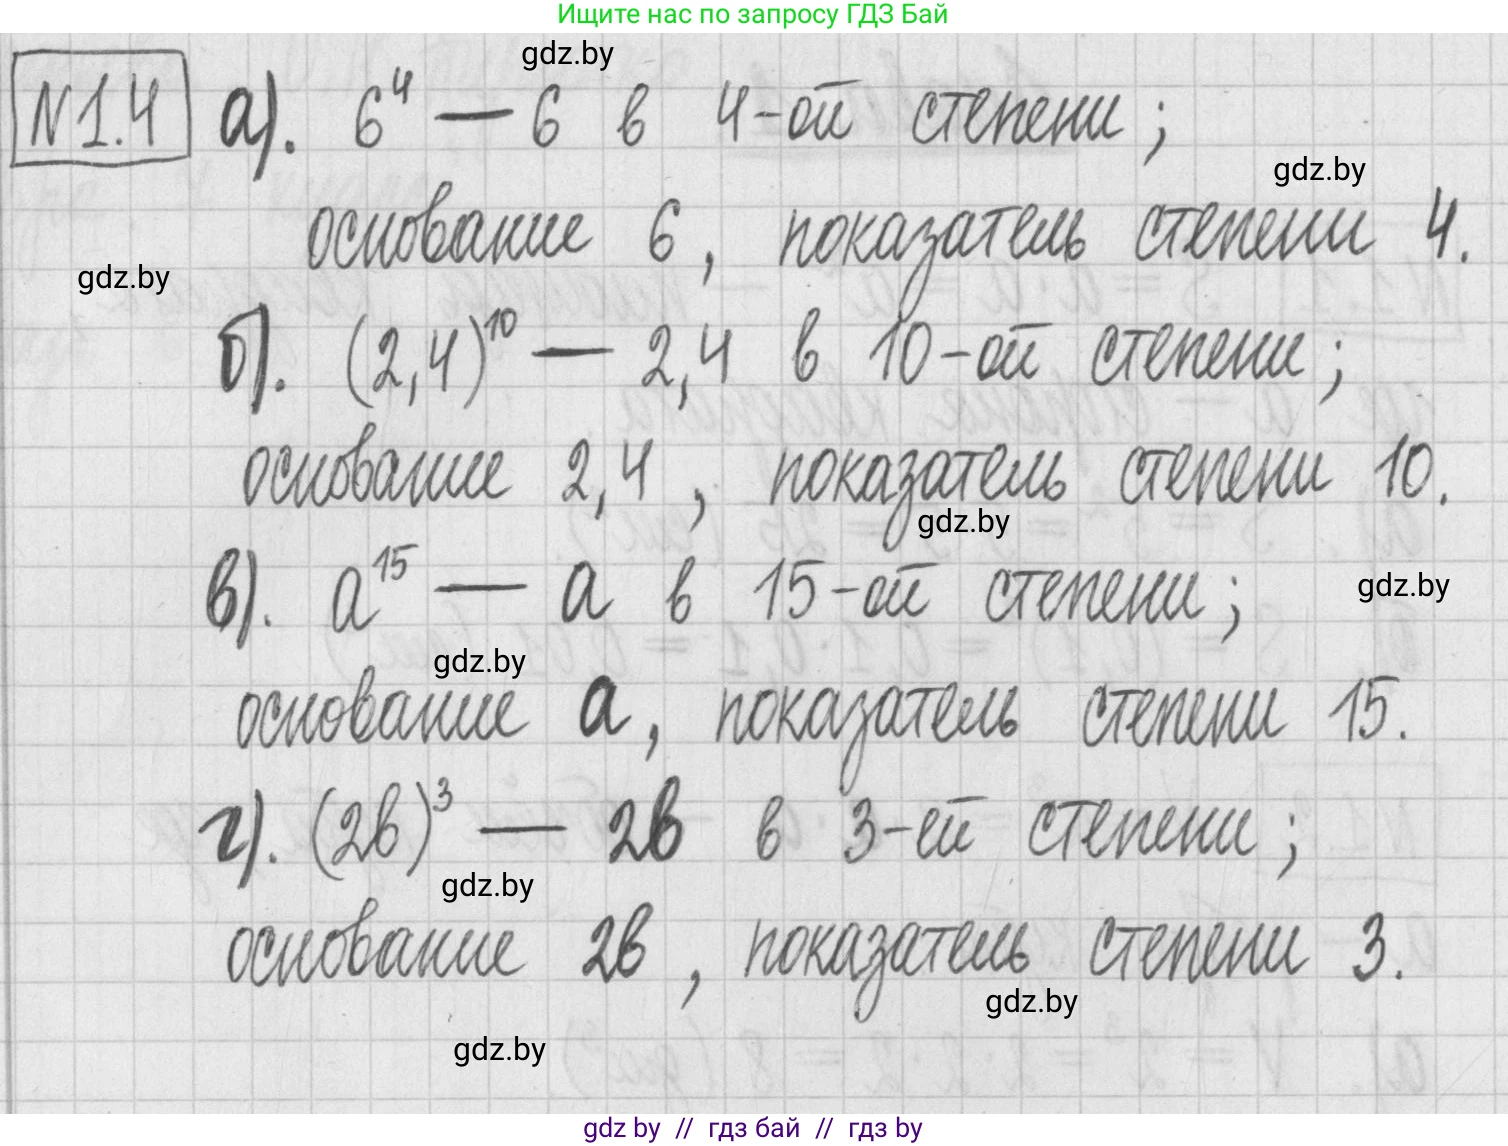 Ищите нас по запросу ГДЗ Бай
gdz.by
N1.4 а). 6⁴ — 6 в 4-ой степени ;
gdz.by
основание 6 , показатель степени 4.
gdz.by
б). (2,4)¹⁰ — 2,4 в 10-ой степени ;
основание 2,4 , показатель степени 10.
gdz.by
в). a¹⁵ — a в 15-ой степени ;
gdz.by
gdz.by
основание a , показатель степени 15.
г). (2в)³ — 2в в 3-ей степени ;
gdz.by
основание 2в , показатель степени 3.
gdz.by
gdz.by
gdz by // гдз бай // гдз by